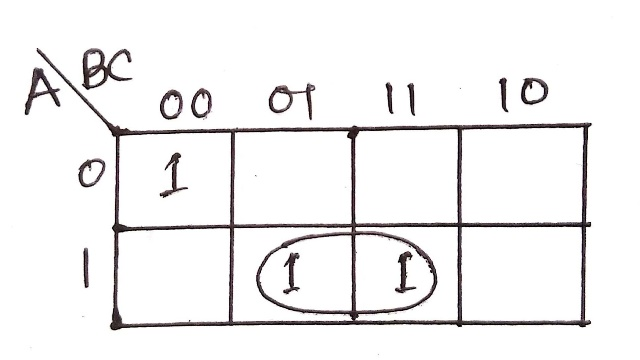 A BC
00 01 11 10
0 1
1 1 1